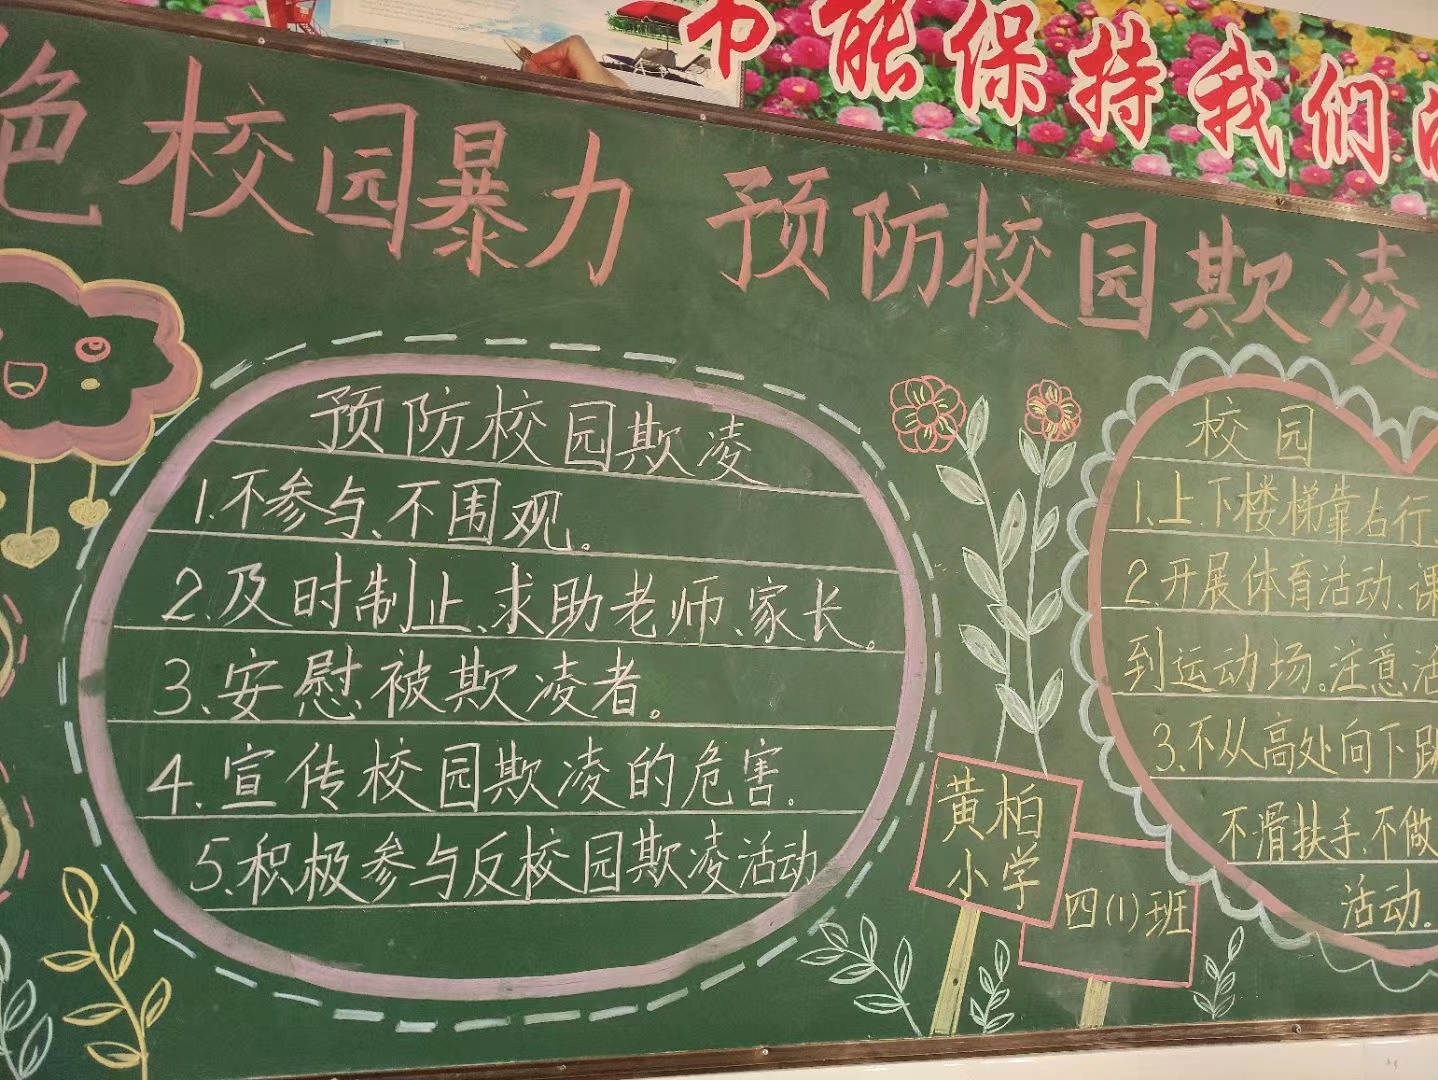 节能保持我们的
绝校园暴力 预防校园欺凌
预防校园欺凌
1.不参与、不围观。
2.及时制止、求助老师、家长。
3.安慰被欺凌者。
4.宣传校园欺凌的危害。
5.积极参与反校园欺凌活动
黄柏
小学
四(1)班
校园
1.上、下楼梯靠右行
2.开展体育活动、课
到运动场。注意活
3.不从高处向下跳
不滑扶手,不做
活动.